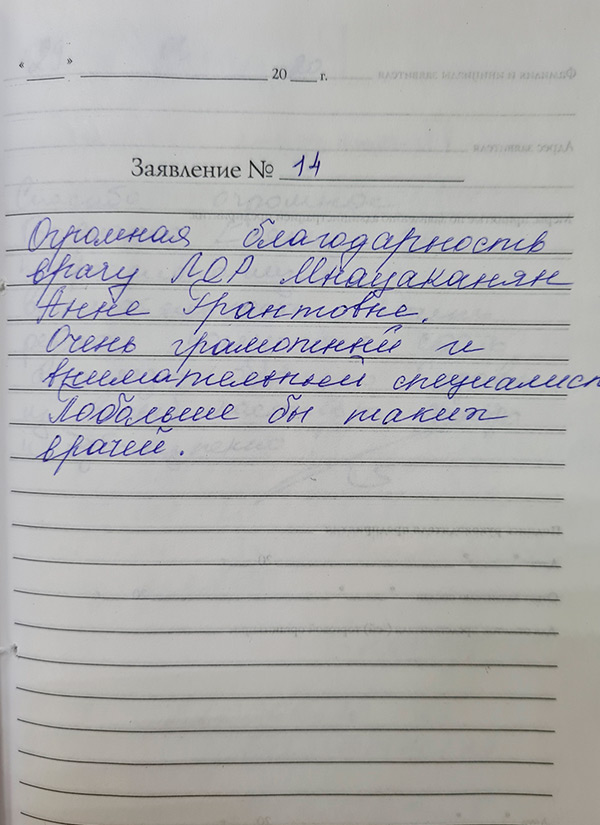 « » 20 г.
Заявление № 14
Огромная благодарность
врачу ЛОР Мнацаканян
Анне Грантовне.
Очень грамотный и
внимательный специалист
Побольше бы таких
врачей.